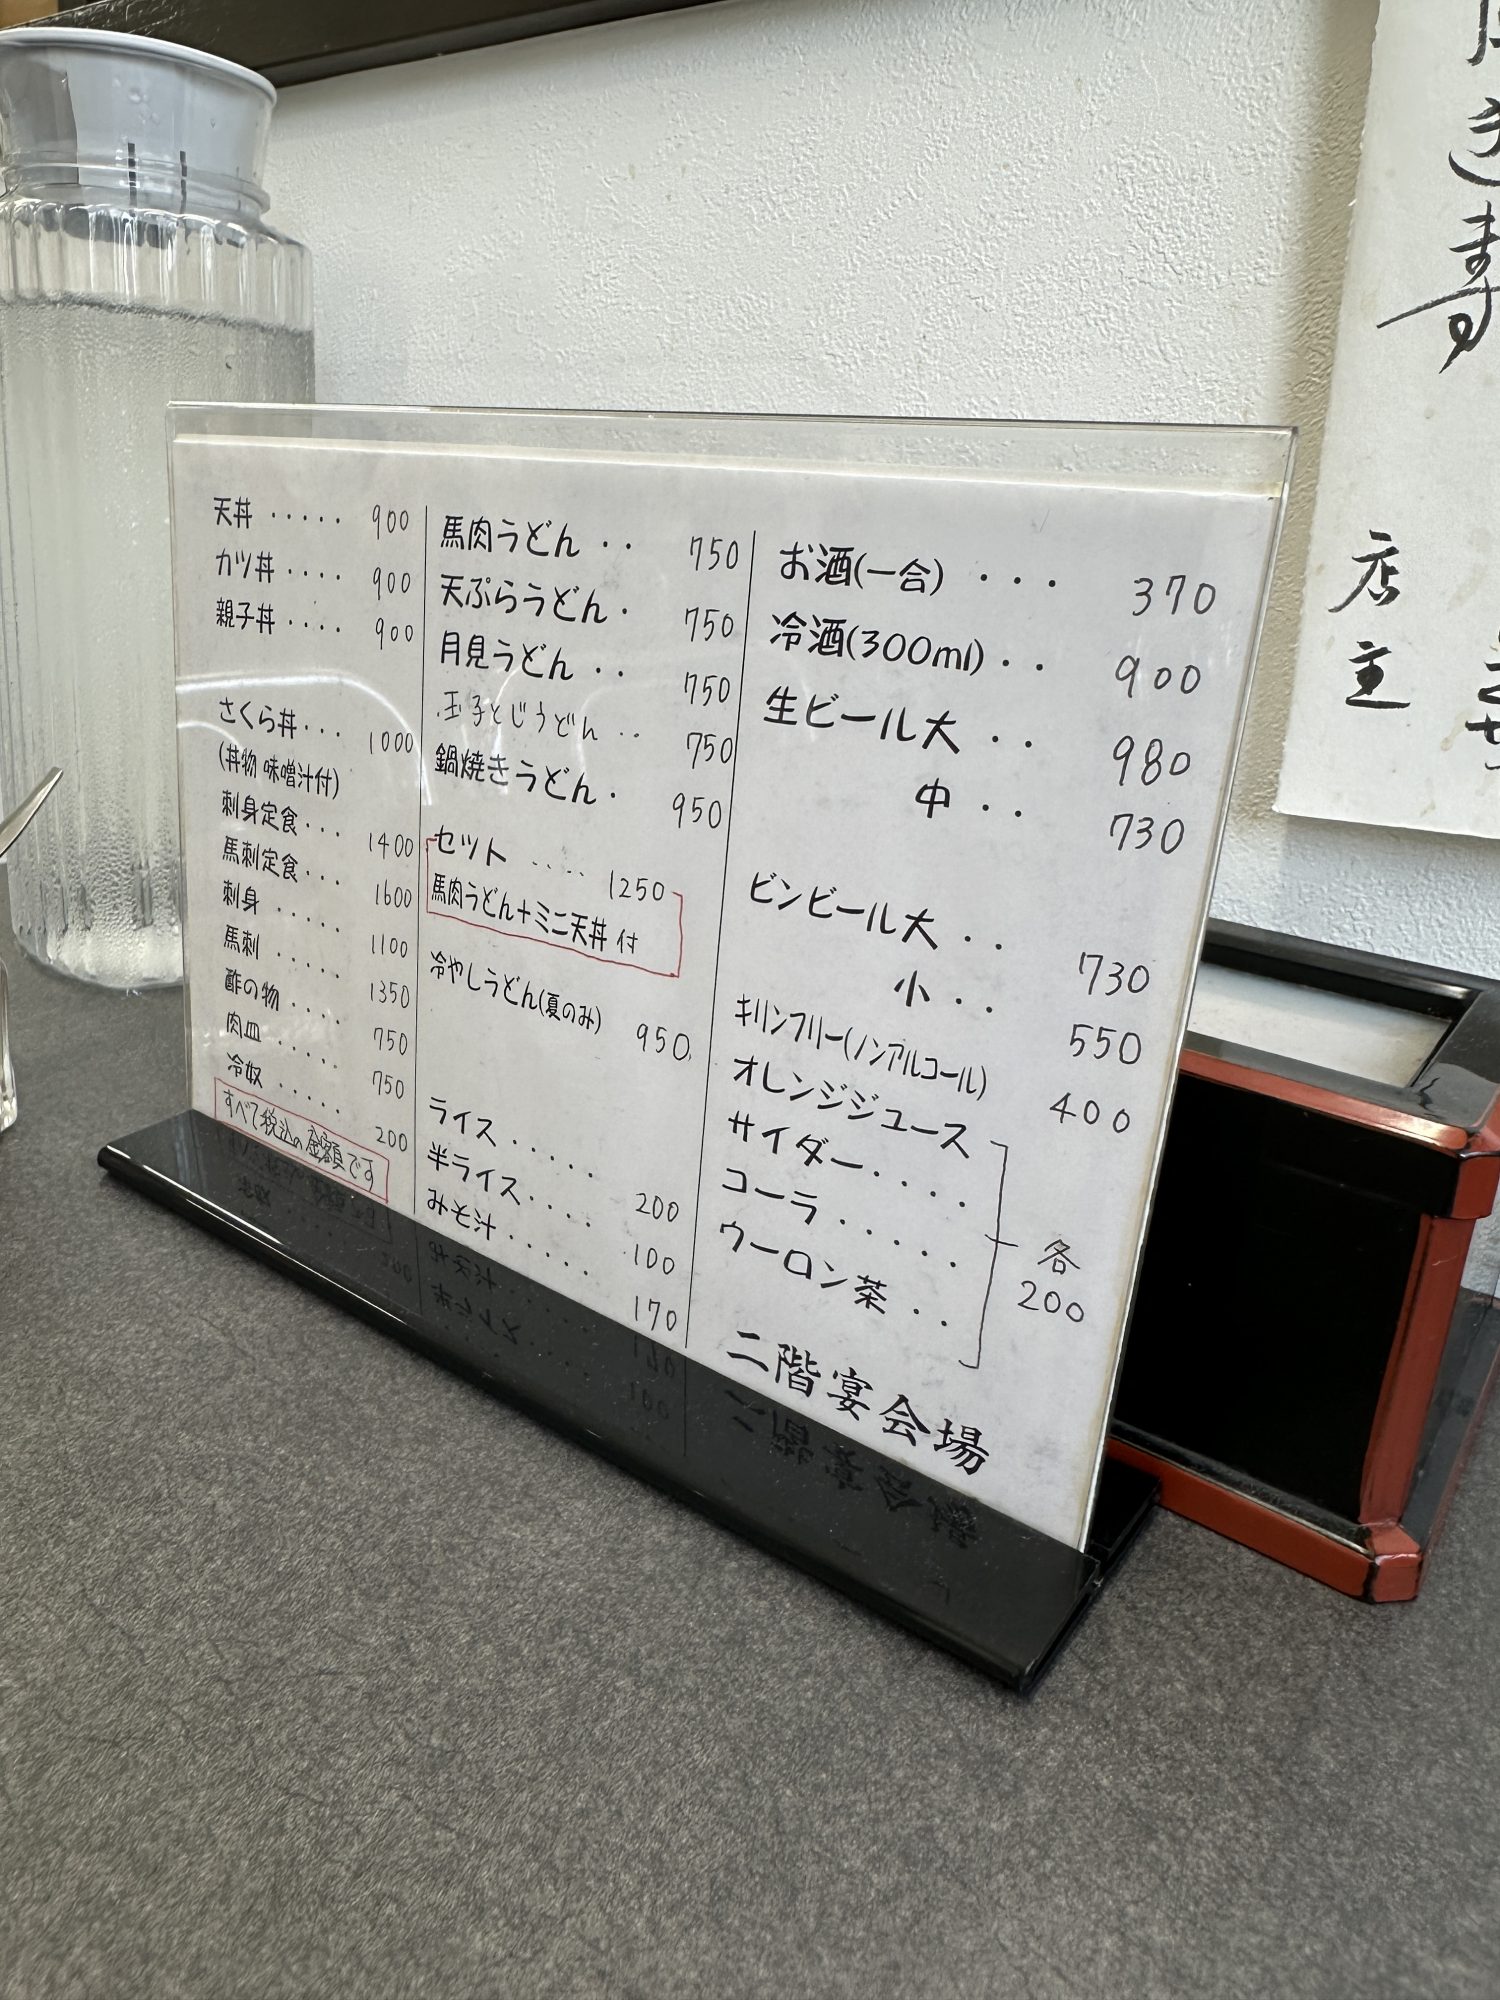 天丼 ····· 900
カツ丼 ···· 900
親子丼 ···· 900
さくら丼 ··· 1000
(丼物 味噌汁付)
刺身定食 ··· 1400
馬刺定食 ··· 1600
刺身 ····· 1100
馬刺 ····· 1350
酢の物 ···· 750
肉皿 ····· 750
冷奴 ····· 200
すべて税込の金額です
馬肉うどん ·· 750
天ぷらうどん · 750
月見うどん ·· 750
玉子とじうどん ·· 750
鍋焼きうどん · 950
セット ····· 1250
馬肉うどん+ミニ天丼 付
冷やしうどん(夏のみ) 950
ライス ····· 200
半ライス ···· 100
みそ汁 ····· 170
お酒(一合) ··· 370
冷酒(300ml) ·· 900
生ビール大 ·· 980
中 ·· 730
ビンビール大 ·· 730
小 ·· 550
キリンフリー(ノンアルコール) 400
オレンジジュース
サイダー ····
コーラ ·····
ウーロン茶 ··
各
200
二階宴会場
寿
店主